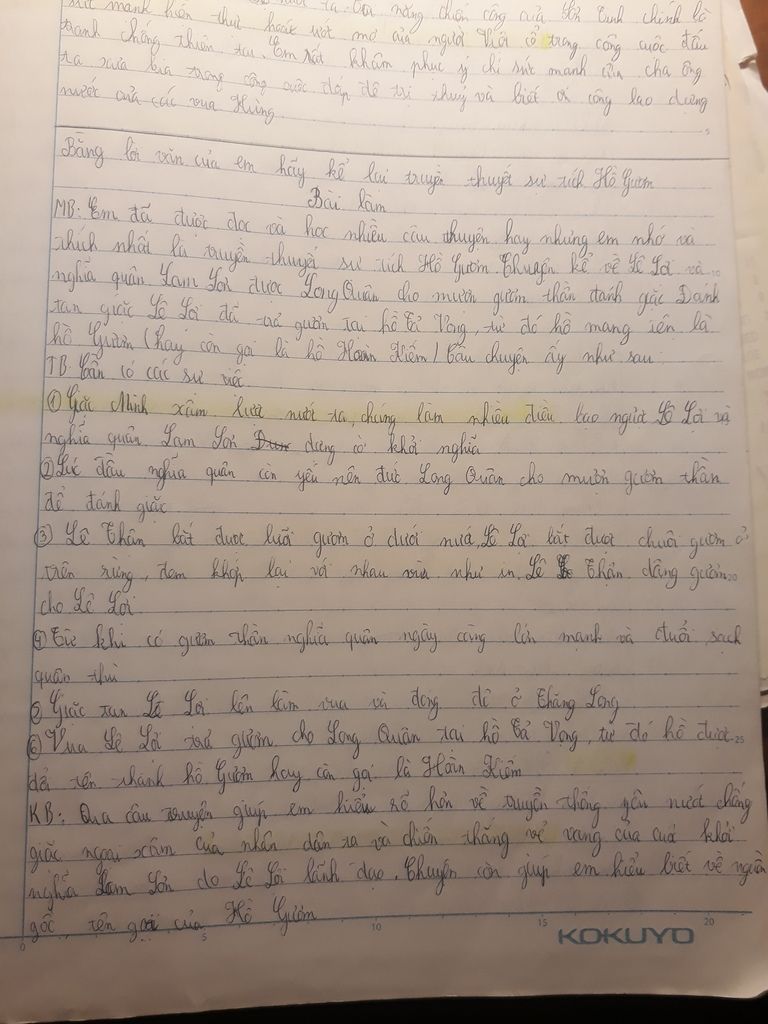 sức mạnh hiện thực hoá ước mơ của người Việt cổ trong công cuộc đấu
tranh chống thiên tai. Em rất khâm phục ý chí sức mạnh của cha ông
ta xưa kia trong công cuộc đắp đê trị thuỷ và biết ơn công lao dựng
nước của các vua Hùng.
Bằng lời văn của em hãy kể lại truyền thuyết sự tích Hồ Gươm
Bài làm
MB: Em đã được đọc và học nhiều câu thuyện hay nhưng em nhớ và
thích nhất là truyền thuyết sự tích Hồ Gươm. Chuyện kể về Lê Lợi và
nghĩa quân Lam Sơn được Long Quân cho mượn gươm thần đánh giặc. Đánh
tan giặc Lê Lợi đã trả gươm tại hồ Tả Vọng, từ đó hồ mang tên là
hồ Gươm (hay còn gọi là hồ Hoàn Kiếm) Câu chuyện ấy như sau:
TB: Cần có các sự việc
① Giặc Minh xâm lược nước ta, chúng làm nhiều điều bạo ngược Lê Lợi và
nghĩa quân Lam Sơn dựng cờ khởi nghĩa
② Lúc đầu nghĩa quân còn yếu nên đức Long Quân cho mượn gươm thần
để đánh giặc
③ Lê Thận bắt được lưỡi gươm ở dưới nước, Lê Lợi bắt được chuôi gươm ở
trên rừng, đem khớp lại với nhau vừa như in. Lê Thận dâng gươm
cho Lê Lợi
④ Từ khi có gươm thần nghĩa quân ngày càng lớn mạnh và đuổi sạch
quân thù
⑤ Giặc tan Lê Lợi lên làm vua và đóng đô ở Thăng Long
⑥ Vua Lê Lợi trả gươm cho Long Quân tại hồ Tả Vọng, từ đó hồ được
đổi tên thành hồ Gươm hay còn gọi là Hoàn Kiếm
KB: Qua câu truyện giúp em hiểu rõ hơn về truyền thống yêu nước chống
giặc ngoại xâm của nhân dân ta và chiến thắng vẻ vang của cuộc khởi
nghĩa Lam Sơn do Lê Lợi lãnh đạo. Chuyện còn giúp em hiểu biết về nguồn
gốc tên gọi của Hồ Gươm
KOKUYO